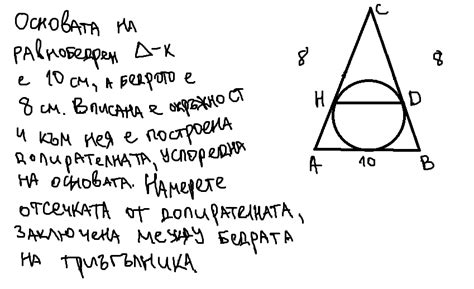 Основата на
равнобедрен Δ-к
е 10 см, а бедрото е
8 см. Вписана е окръжност
и към нея е построена
допирателната, успоредна
на основата. Намерете
отсечката от допирателната,
заключена между бедрата
на триъгълника
C
8
8
H
D
A
10
B